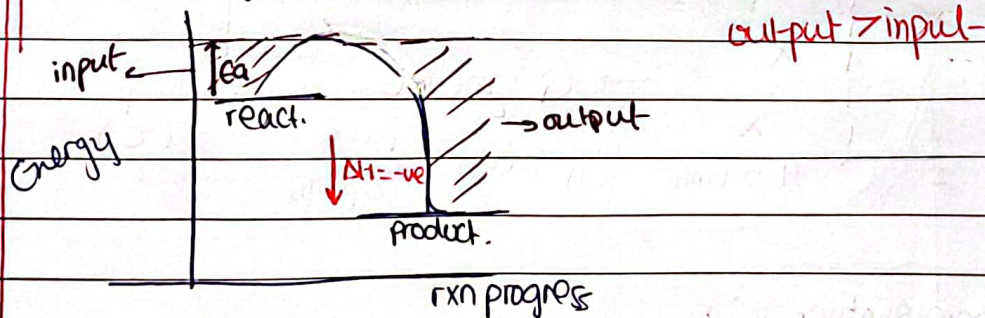 output > input
input
Ea
react.
→ output
Energy
ΔH = -ve
product.
rxn progress